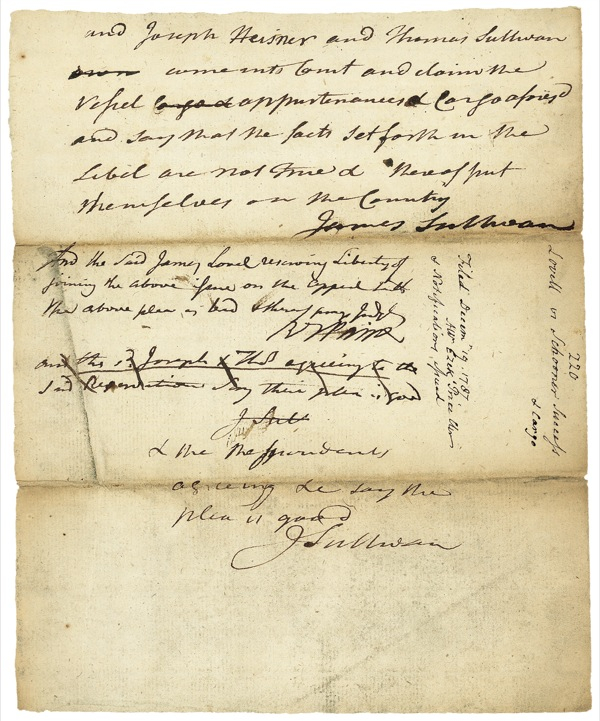 and Joseph Heisner and Thomas Sullivan
come into Court and claim the
Vessel Cargo & appurtenances & Cargo aforesd
and say that the facts set forth in the
Libel are not True & thereof put
themselves on the Country
James Sullivan
And the said James Lovel reserving Liberty of
joining the above Issue on the Appeal saith
the above plea is bad & thereof prays Judgt
and the sd Joseph & Thos agreeing to the
said Reservation Say their plea is good
J Sull
& the Respondents
agreeing &c say the
plea is good
J Sullivan
Filed Decem 19, 1787.
Ezek Price
& Notifications issued
220
Lovell vs Schooner Success
& Cargo